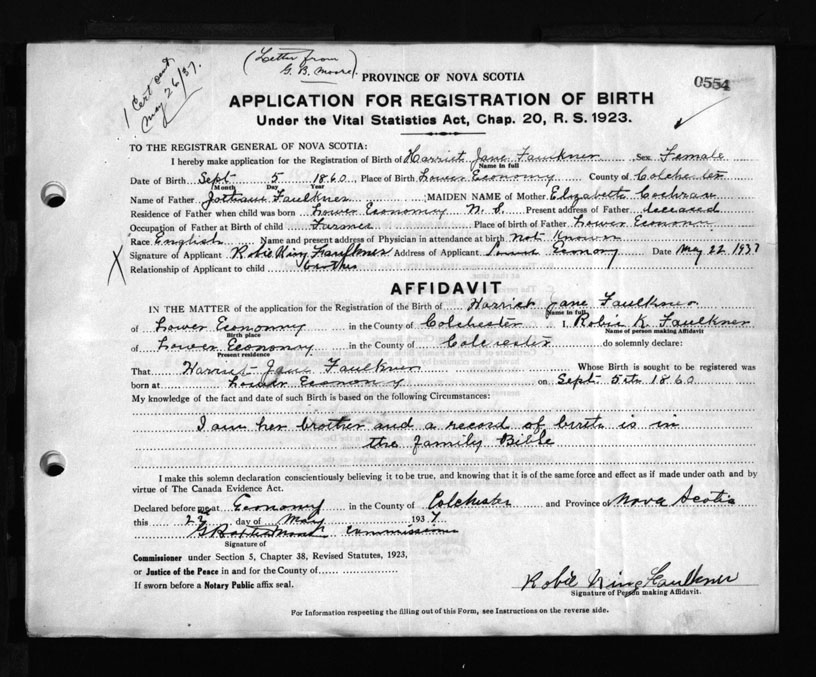 (Letter from
G. B. Moore).
1 Cert out
May 26/37.
0554
PROVINCE OF NOVA SCOTIA
APPLICATION FOR REGISTRATION OF BIRTH
Under the Vital Statistics Act, Chap. 20, R. S. 1923.
TO THE REGISTRAR GENERAL OF NOVA SCOTIA:
I hereby make application for the Registration of Birth of Harriet Jane Faulkner Sex Female
Name in full
Date of Birth Sept 5 1860 Place of Birth Lower Economy County of Colchester
Month Day Year
Name of Father Jotham Faulkner MAIDEN NAME of Mother Elizabeth Cochran
Residence of Father when child was born Lower Economy N. S. Present address of Father deceased
Occupation of Father at Birth of child Farmer Place of birth of Father Lower Economy
Race English Name and present address of Physician in attendance at birth not Known
Signature of Applicant Robie King Faulkner Address of Applicant Economy Date May 22 1937
X
Relationship of Applicant to child brother
AFFIDAVIT
IN THE MATTER of the application for the Registration of the Birth of Harriet Jane Faulkner
Name in full
of Lower Economy in the County of Colchester I, Robie K. Faulkner
Birth place Name of person making Affidavit
of Lower Economy in the County of Colchester do solemnly declare:
Present residence
That Harriet Jane Faulkner Whose Birth is sought to be registered was
born at Lower Economy on Sept 5th 1860
My knowledge of the fact and date of such Birth is based on the following Circumstances:
I am her brother and a record of birth is in
the family Bible
I make this solemn declaration conscientiously believing it to be true, and knowing that it is of the same force and effect as if made under oath and by
virtue of The Canada Evidence Act.
Declared before me at Economy in the County of Colchester and Province of Nova Scotia
this 22 day of May 1937
Commissioner
Signature of
Commissioner under Section 5, Chapter 38, Revised Statutes, 1923,
or Justice of the Peace in and for the County of
If sworn before a Notary Public affix seal.
Robie King Faulkner
Signature of Person making Affidavit.
For Information respecting the filling out of this Form, see Instructions on the reverse side.